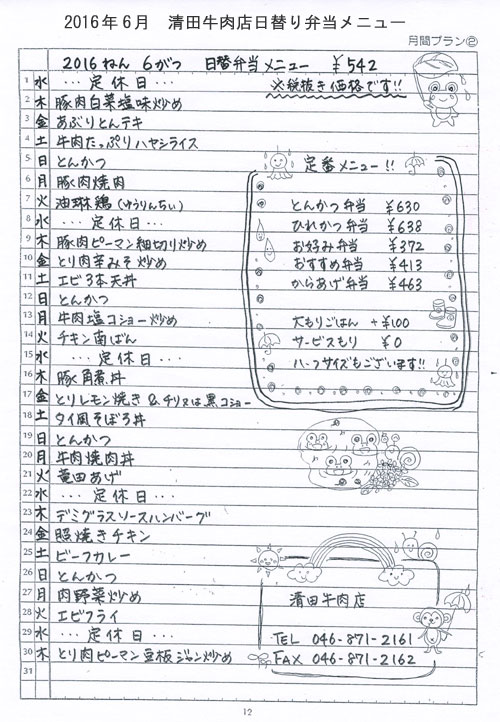 2016年6月 清田牛肉店日替り弁当メニュー
月間プラン②
2016ねん 6がつ 日替弁当メニュー ¥542
※税抜き価格です!!
1 水 … 定休日 …
2 木 豚肉白菜塩味炒め
3 金 あぶりとんテキ
4 土 牛肉たっぷりハヤシライス
5 日 とんかつ
6 月 豚肉焼肉
7 火 油琳鶏(ゆうりんちぃ)
8 水 … 定休日 …
9 木 豚肉ピーマン細切り炒め
10 金 とり肉辛みそ炒め
11 土 エビ3本天丼
12 日 とんかつ
13 月 牛肉塩コショー炒め
14 火 チキン南ばん
15 水 … 定休日 …
16 木 豚角煮丼
17 金 とりレモン焼き & チリ又は黒コショー
18 土 タイ風そぼろ丼
19 日 とんかつ
20 月 牛肉焼肉丼
21 火 竜田あげ
22 水 … 定休日 …
23 木 デミグラスソースハンバーグ
24 金 照焼きチキン
25 土 ビーフカレー
26 日 とんかつ
27 月 肉野菜炒め
28 火 エビフライ
29 水 … 定休日 …
30 木 とり肉ピーマン豆板ジャン炒め
31
定番メニュー!!
とんかつ弁当 ¥630
ひれかつ弁当 ¥638
お好み弁当 ¥372
おすすめ弁当 ¥413
からあげ弁当 ¥463
大もりごはん +¥100
サービスもり ¥0
ハーフサイズもございます!!
清田牛肉店
TEL 046-871-2161
FAX 046-871-2162
12